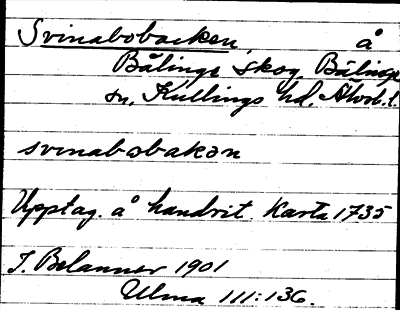 Svinabobacken, å
Bälinge skog, Bälinge
sn, Kullings hd, Älvsb. l.
svinabobakən
Upptag. å handrit. Karta 1735
J. Belanner 1901
Ulma 111:136.